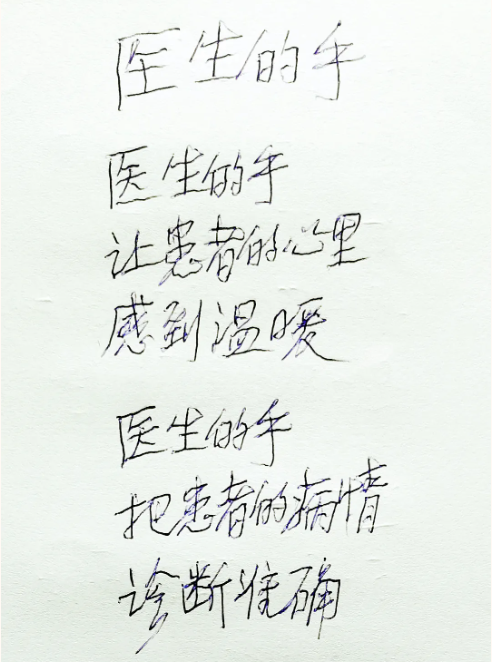 医生的手
医生的手
让患者的心里
感到温暖
医生的手
把患者的病情
诊断准确